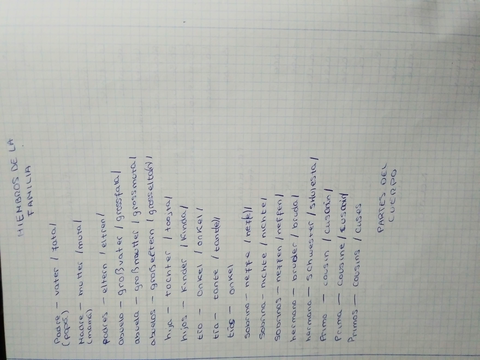 MIEMBROS DE LA
FAMILIA
Padre – vater /fata/
(papá)
Madre – mutter /muta/
(mamá)
padres – eltern /eltren/
abuelo – großvater /grossfata/
abuela – großmutter /grossmuta/
abuelos – großeltern /grosseltarn/
hija – tochter /
hijos – kinder /kinda/
tío – onkel /onkel/
tía – tante /tande/
tíos – onkel
sobrino – neffe /nefe/
sobrina – nichte /nichte/
sobrinos – neffen /neffen/
hermano – bruder /bruda/
hermana – schwester /
Primo – cousin /cusain/
Prima – cousine /cusain/
Primos – cousins /cuses
PARTES DEL
CUERPO